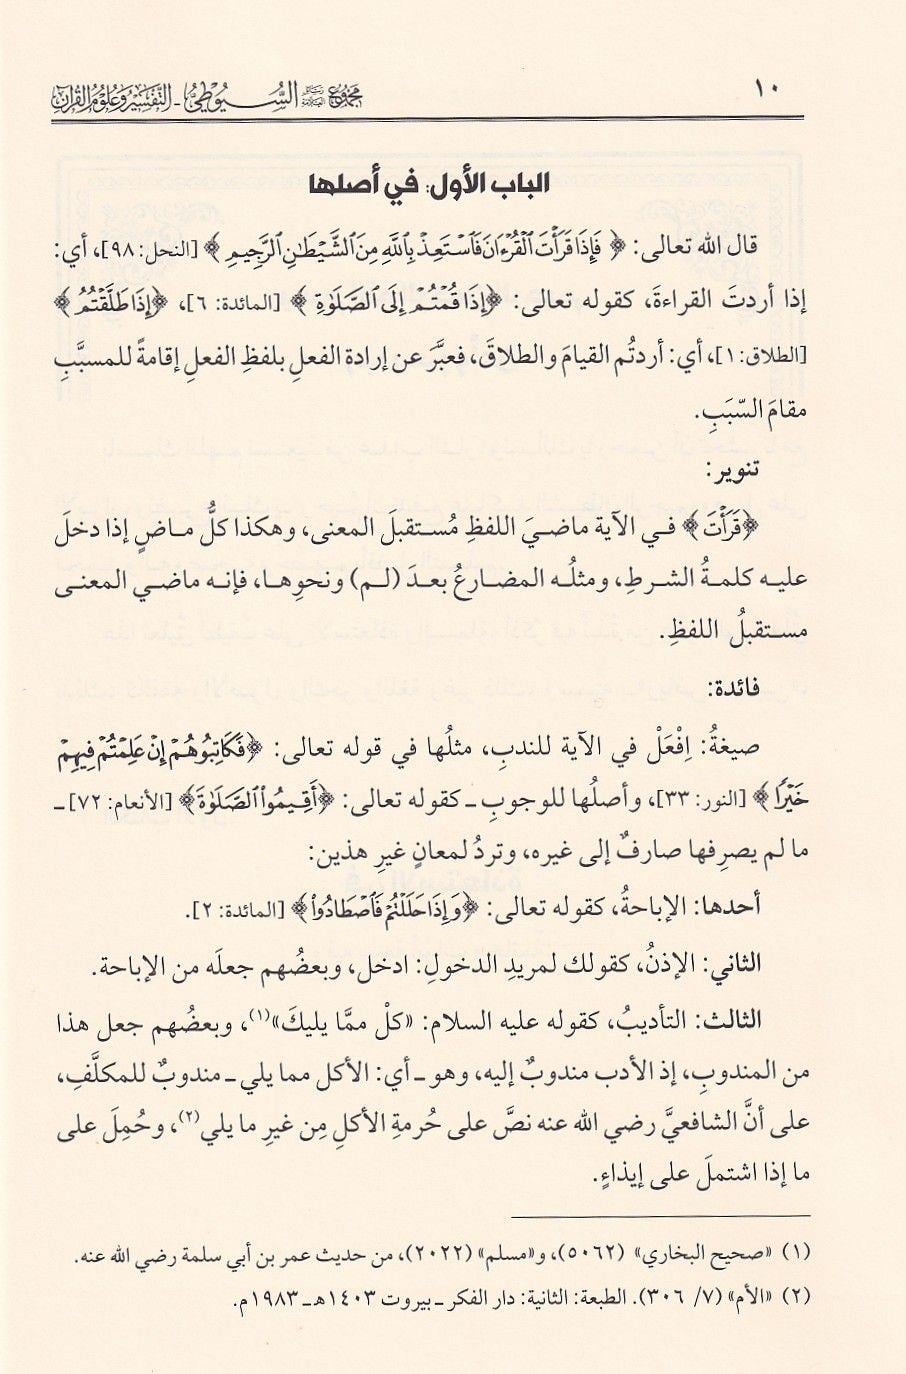 ١٠
مجموع رسائل العلامة السيوطي - التفسير وعلوم القرآن
الباب الأول: في أصلها
قال الله تعالى: ﴿فَإِذَا قَرَأْتَ ٱلْقُرْءَانَ فَٱسْتَعِذْ بِٱللَّهِ مِنَ ٱلشَّيْطَٰنِ ٱلرَّجِيمِ﴾ [النحل: ٩٨]، أي:
إذا أردتَ القراءةَ، كقوله تعالى: ﴿إِذَا قُمْتُمْ إِلَى ٱلصَّلَوٰةِ﴾ [المائدة: ٦]، ﴿إِذَا طَلَّقْتُمُ﴾
[الطلاق: ١]، أي: أردتُم القيامَ والطلاقَ، فعبَّرَ عن إرادة الفعلِ بلفظِ الفعلِ إقامةً للمسبَّبِ
مقامَ السّبَبِ.
تنوير:
﴿قَرَأْتَ﴾ في الآية ماضيَ اللفظِ مُستقبلَ المعنى، وهكذا كلُّ ماضٍ إذا دخلَ
عليه كلمةُ الشرطِ، ومثلُه المضارعُ بعدَ (لم) ونحوِها، فإنه ماضي المعنى
مستقبلُ اللفظِ.
فائدة:
صيغةُ: اِفْعَلْ في الآية للندبِ، مثلُها في قوله تعالى: ﴿فَكَاتِبُوهُمْ إِنْ عَلِمْتُمْ فِيهِمْ
خَيْرًا﴾ [النور: ٣٣]، وأصلُها للوجوبِ ـ كقوله تعالى: ﴿أَقِيمُوا۟ ٱلصَّلَوٰةَ﴾ [الأنعام: ٧٢] ـ
ما لم يصرِفها صارفٌ إلى غيره، وتردُ لمعانٍ غيرِ هذين:
أحدها: الإباحةُ، كقوله تعالى: ﴿وَإِذَا حَلَلْتُمْ فَٱصْطَادُوا۟﴾ [المائدة: ٢].
الثاني: الإذنُ، كقولك لمريدِ الدخولِ: ادخل، وبعضُهم جعلَه من الإباحة.
الثالث: التأديبُ، كقوله عليه السلام: «كلْ ممَّا يليكَ»(١)، وبعضُهم جعل هذا
من المندوبِ، إذ الأدب مندوبٌ إليه، وهو ـ أي: الأكل مما يلي ـ مندوبٌ للمكلَّفِ،
على أنَّ الشافعيَّ رضي الله عنه نصَّ على حُرمةِ الأكلِ مِن غيرِ ما يلي(٢)، وحُمِلَ على
ما إذا اشتملَ على إيذاءٍ.
(١) «صحيح البخاري» (٥٠٦٢)، و«مسلم» (٢٠٢٢)، من حديث عمر بن أبي سلمة رضي الله عنه.
(٢) «الأم» (٧/ ٣٠٦). الطبعة: الثانية: دار الفكر ـ بيروت ١٤٠٣هـ ـ ١٩٨٣م.